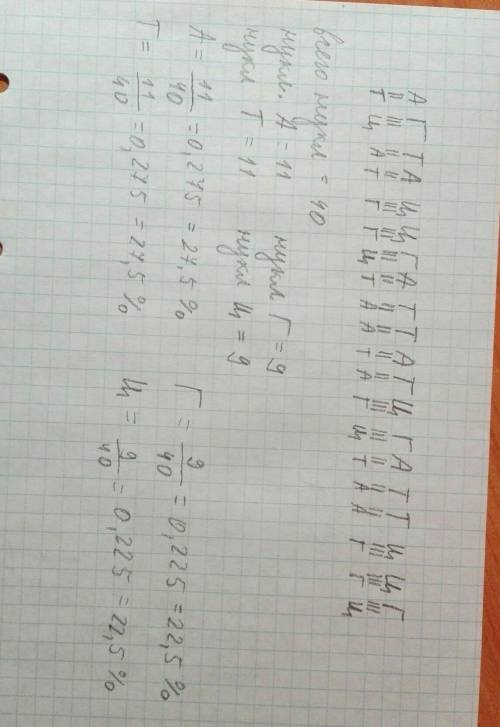 А Г Т А Ц Ц Г А Т Т А Т Ц Г А Т Т Ц Ц Г
Т Ц А Т Г Г Ц Т А А Т А Г Ц Т А А Г Г Ц
всего нукл = 40
нукл. А = 11 нукл Г = 9
нукл Т = 11 нукл Ц = 9
А = 11/40 = 0,275 = 27,5 % Г = 9/40 = 0,225 = 22,5 %
Т = 11/40 = 0,275 = 27,5 % Ц = 9/40 = 0,225 = 22,5 %